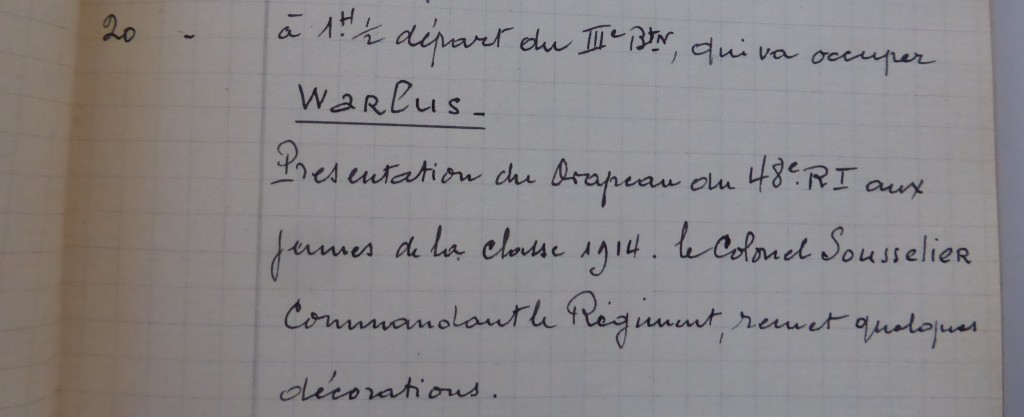 20 - à 1H 1/2 départ du IIIe Btn, qui va occuper
Warlus -
Presentation du Drapeau du 48e. RI aux
jeunes de la classe 1914. le Colonel Sousselier
Commandant le Régiment, remet quelques
décorations.